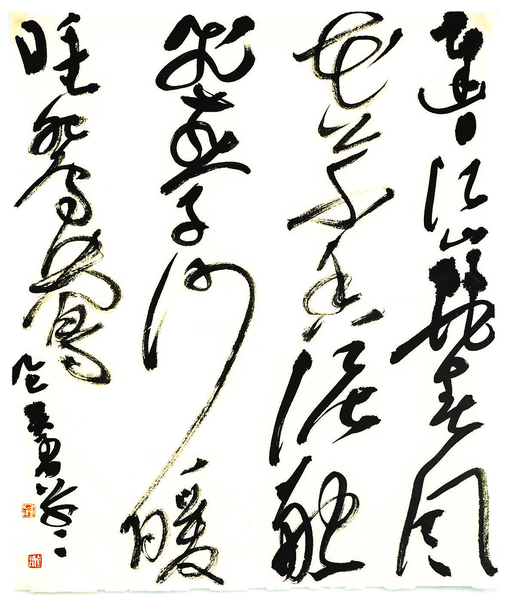 遲日江山麗春風
花草香泥融
飛燕子沙暖
睡鴛鴦